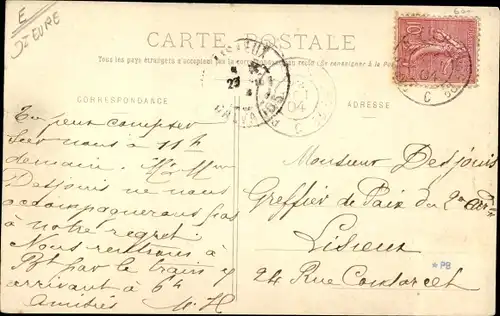 E
Jz EURE
60
CARTE POSTALE
Tous les pays étrangers n'acceptent pas la correspondance au recto (se renseigner à la Poste)
CORRESPONDANCE
ADRESSE
LISIEUX
CALVADOS
04
10
Tu peux compter
sur nous à 11h
demain. M. et Mme
Desjouis ne nous
accompagnerons pas
à notre regret.
Nous rentrons à
par le train y
arrivant à 6h
Amitiés M. H
Monsieur Desjouis
Greffier de Paix du 2me
Lisieux
24 Rue Condorcet
*PB